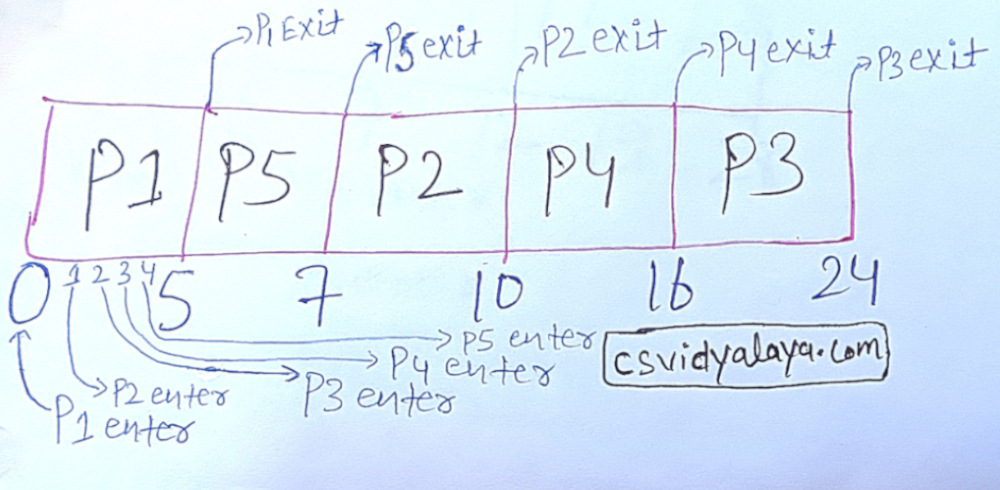 P1 Exit P5 exit P2 exit P4 exit P3 exit
P1 P5 P2 P4 P3
0 1 2 3 4 5 7 10 16 24
P5 enter
P4 enter
P3 enter
P2 enter
P1 enter
csvidyalaya.com